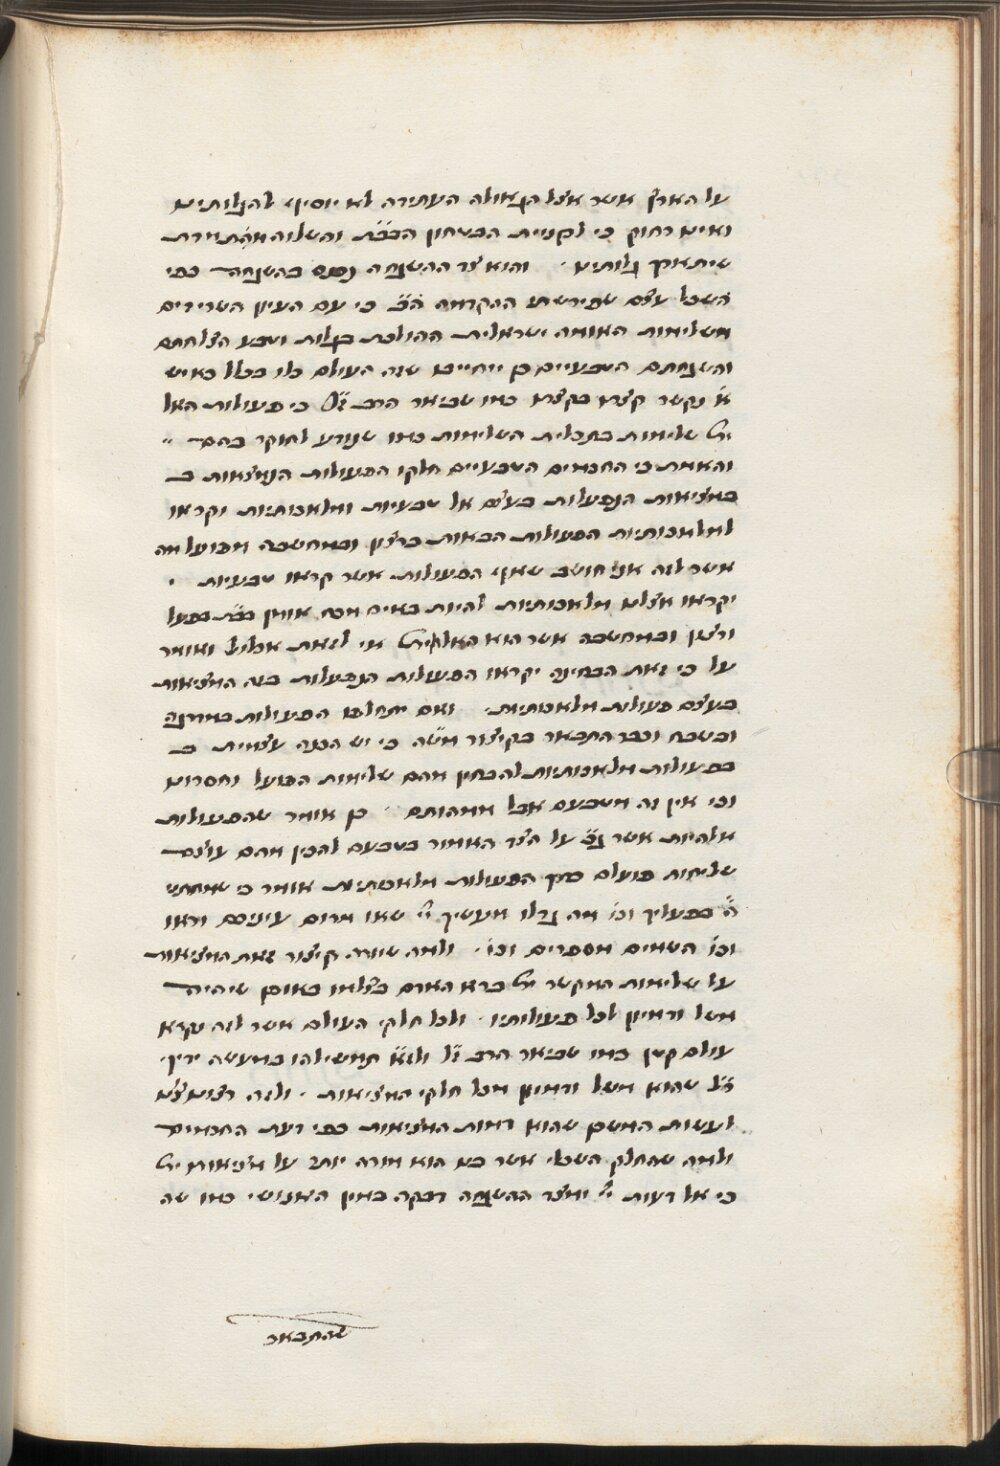 על הארץ אשר אצל הגאולה העתידה לא יוסיף להגלותם
ואינו רחוק כי לקניית הבטחון והשלוה
שיתארך גלותם . והוא צד ההשגחה בהשגחה כפי
השכל עצם ההקדמה כי עם העיון השרידים
משלימות האומה ישראלית ההולכת בגלות וטבע הצלחתם
והשגחתם הטבעיים כן יחייבו שזה העולם כלו בכלל כאיש
א' נקשר קצתו בקצתו כמו שביאר הרב ז"ל כי פעולות האל
ית' שלימות בתכלית השלימות כמו שנודע לחוקר בהם
והאמת כי החכמים הטבעיים חלקו הפעולות הנמצאות ב
במציאות הנפעלות בעצם אל טבעיות ומלאכותיות וקראו
למלאכותיות הפעולות הבאות ברצון ובמחשבה מפועל מה
אשר לזה אני חושב שאף הפעולות אשר קראו טבעיות
יקראו אצלנו מלאכותיות להיות באים אומן בפעל
ורצון ובמחשבה אשר הוא האל ית' אי לזאת ואומר
על כי זאת הבחינה יקראו הפעולות הנפעלות בזה המציאות
בעצם פעולות מלאכותיות . ואם יתחלפו הפעולות במדרגה
ובשבח וכבר התבאר בקיצור מ"שה כי יש הכנה עצמית ב
בפעולות מלאכותיות להבחין מהם שלימות הפועל וחסרונו
וכי אין זה מטבעם אבל ממהותם . כן אומר שהפעולות
אלהיות אשר על הצד האמור בטבעם להבין מהם עוצם
שלימות פועלם הפעולות מלאכותיות אומר כי שמחתני
ה' בפעליך וכו' מה גדלו מעשיך ה' שאו מרום עיניכם וראו
וכו' השמים מספרים וכו' . ולמה שיורה קיצור זאת המציאות
על שלימות המקשר ית' ברא האדם בצלמו באופן שיהיה
משל ודמיון לכל פעולותיו . ולכל חלקי העולם אשר לזה נקרא
עולם קטן כמו שביאר הרב ז"ל תמשילהו במעשה ידיך
ר"ל שהוא משל ודמיון מכל חלקי המציאות . ולזה
לעשות המשכן שהוא דמות המציאות כפי דעת החכמים
ולמה שהחלק השכלי אשר בנו הוא מורה יותר על מציאותו ית'
כי אל דעות ה' ומצד ההשגחה דבקה במין האנושי כמו שה
שהתבאר